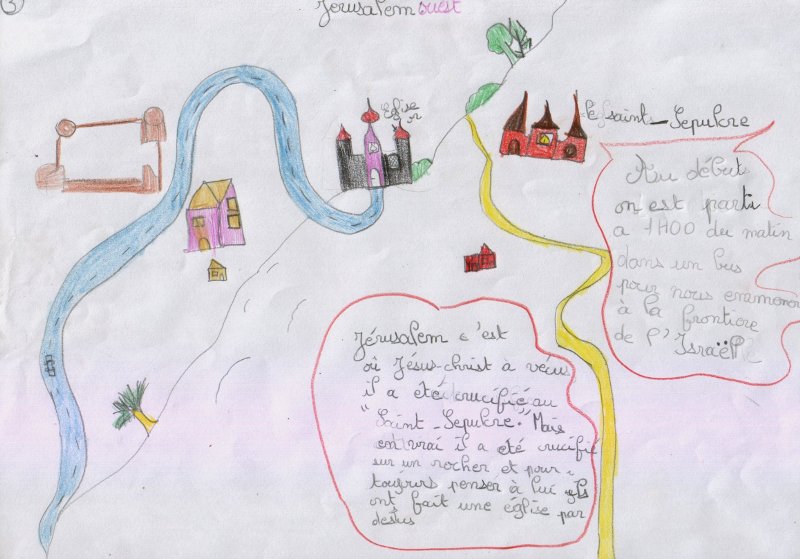 3
Jérusalem ouest
Eglise
or
le saint_Sepulcre
Au début
on est parti
a 1H00 du matin
dans un bus
pour nous emmoner
à la frontiere
de l'Israël
Jérusalem c'est
où Jésus-christ à vécus
il a eté crucifié au
"Saint_Sepulcre". Mais
en vrai il a eté crucifié
sur un rocher et pour
toujours penser à lui ils
ont fait une église par
destus